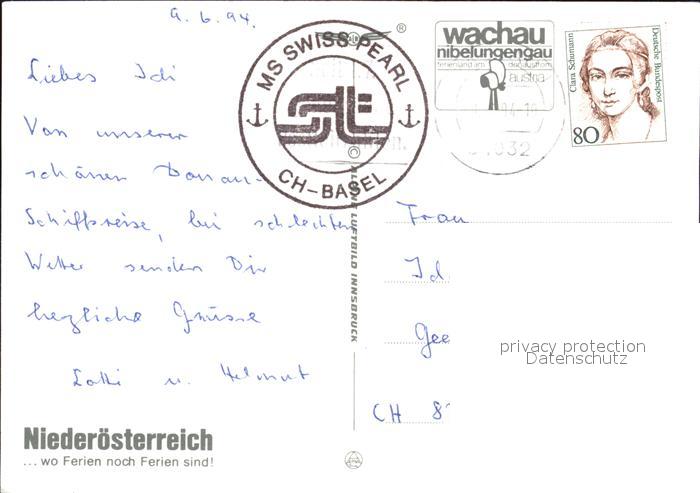 9.6.94.
Liebes Idi
Von unserer
schönen Donau-
Schiffsreise, bei schlechtem
Wetter senden Dir
herzliche Grüsse
Lotti u. Helmut
Niederösterreich
... wo Ferien noch Ferien sind!
MS SWISS PEARL
CH-BASEL
®
wachau
nibelungengau
ferienland am donaustrom
austria
Clara Schumann
Deutsche Bundespost
80
©
ALPINE LUFTBILD INNSBRUCK
Frau
Id
Gee
CH 8
privacy protection
Datenschutz